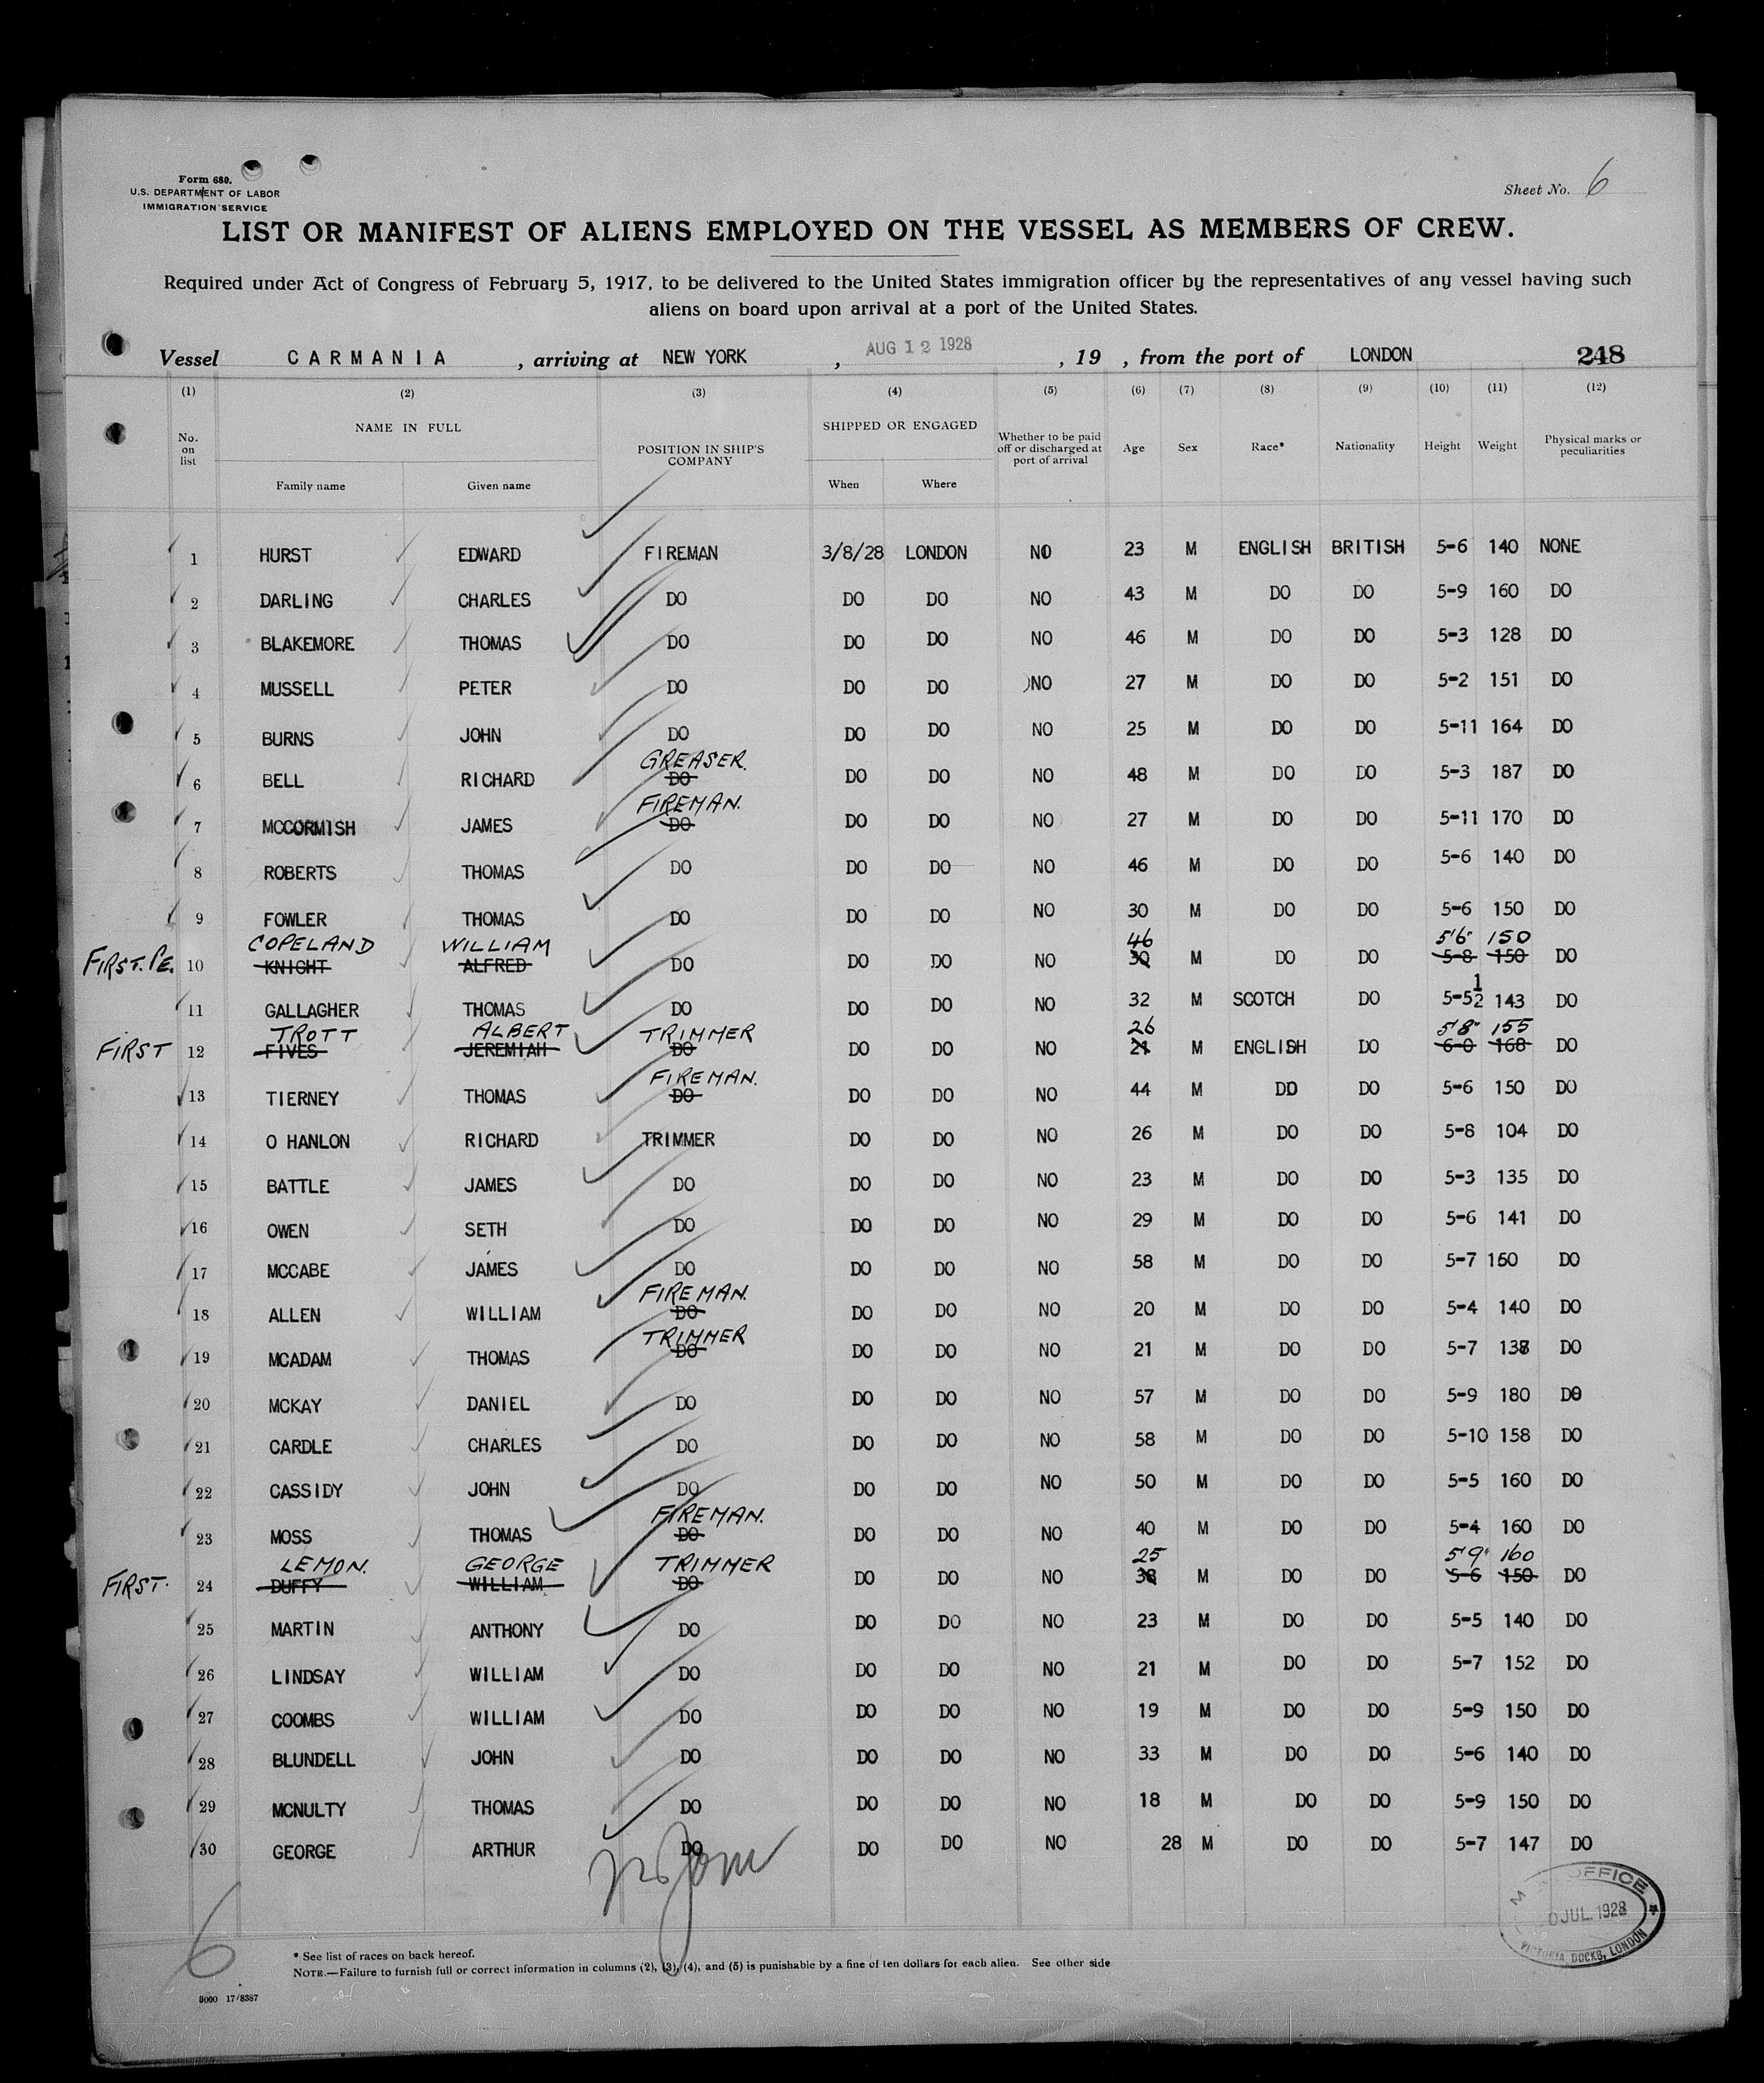 Form 680.
U.S. DEPARTMENT OF LABOR
IMMIGRATION SERVICE
Sheet No. 6
LIST OR MANIFEST OF ALIENS EMPLOYED ON THE VESSEL AS MEMBERS OF CREW.
Required under Act of Congress of February 5, 1917, to be delivered to the United States immigration officer by the representatives of any vessel having such
aliens on board upon arrival at a port of the United States.
Vessel CARMANIA , arriving at NEW YORK , AUG 12 1928 , 19 , from the port of LONDON 248
(1) (2) (3) (4) (5) (6) (7) (8) (9) (10) (11) (12)
No. on list NAME IN FULL Family name Given name POSITION IN SHIP'S COMPANY SHIPPED OR ENGAGED When Where Whether to be paid off or discharged at port of arrival Age Sex Race* Nationality Height Weight Physical marks or peculiarities
1 HURST EDWARD FIREMAN 3/8/28 LONDON NO 23 M ENGLISH BRITISH 5-6 140 NONE
2 DARLING CHARLES DO DO DO NO 43 M DO DO 5-9 160 DO
3 BLAKEMORE THOMAS DO DO DO NO 46 M DO DO 5-3 128 DO
4 MUSSELL PETER DO DO DO NO 27 M DO DO 5-2 151 DO
5 BURNS JOHN DO DO DO NO 25 M DO DO 5-11 164 DO
GREASER.
6 BELL RICHARD DO DO DO NO 48 M DO DO 5-3 187 DO
FIREMAN.
7 MCCORMISH JAMES DO DO DO NO 27 M DO DO 5-11 170 DO
8 ROBERTS THOMAS DO DO DO NO 46 M DO DO 5-6 140 DO
9 FOWLER THOMAS DO DO DO NO 30 M DO DO 5-6 150 DO
COPELAND WILLIAM 46 5'6" 150
FIRST. PE. 10 KNIGHT ALFRED DO DO DO NO 30 M DO DO 5-8 150 DO
11 GALLAGHER THOMAS DO DO DO NO 32 M SCOTCH DO 5-5 1/2 143 DO
TROTT ALBERT TRIMMER 26 5'8" 155
FIRST 12 FIVES JEREMIAH DO DO DO NO 21 M ENGLISH DO 6-0 168 DO
FIREMAN.
13 TIERNEY THOMAS DO DO DO NO 44 M DO DO 5-6 150 DO
14 O HANLON RICHARD TRIMMER DO DO NO 26 M DO DO 5-8 104 DO
15 BATTLE JAMES DO DO DO NO 23 M DO DO 5-3 135 DO
16 OWEN SETH DO DO DO NO 29 M DO DO 5-6 141 DO
17 MCCABE JAMES DO DO DO NO 58 M DO DO 5-7 150 DO
FIREMAN.
18 ALLEN WILLIAM DO DO DO NO 20 M DO DO 5-4 140 DO
TRIMMER
19 MCADAM THOMAS DO DO DO NO 21 M DO DO 5-7 138 DO
20 MCKAY DANIEL DO DO DO NO 57 M DO DO 5-9 180 DO
21 CARDLE CHARLES DO DO DO NO 58 M DO DO 5-10 158 DO
22 CASSIDY JOHN DO DO DO NO 50 M DO DO 5-5 160 DO
FIREMAN.
23 MOSS THOMAS DO DO DO NO 40 M DO DO 5-4 160 DO
LEMON. GEORGE TRIMMER 25 5'9" 160
FIRST. 24 DUFFY WILLIAM DO DO DO NO 38 M DO DO 5-6 150 DO
25 MARTIN ANTHONY DO DO DO NO 23 M DO DO 5-5 140 DO
26 LINDSAY WILLIAM DO DO DO NO 21 M DO DO 5-7 152 DO
27 COOMBS WILLIAM DO DO DO NO 19 M DO DO 5-9 150 DO
28 BLUNDELL JOHN DO DO DO NO 33 M DO DO 5-6 140 DO
29 MCNULTY THOMAS DO DO DO NO 18 M DO DO 5-9 150 DO
30 GEORGE ARTHUR DO DO DO NO 28 M DO DO 5-7 147 DO
OFFICE
JUL. 1928
VICTORIA DOCKS, LONDON
6
* See list of races on back hereof.
NOTE.—Failure to furnish full or correct information in columns (2), (3), (4), and (5) is punishable by a fine of ten dollars for each alien. See other side
5000 17/8387